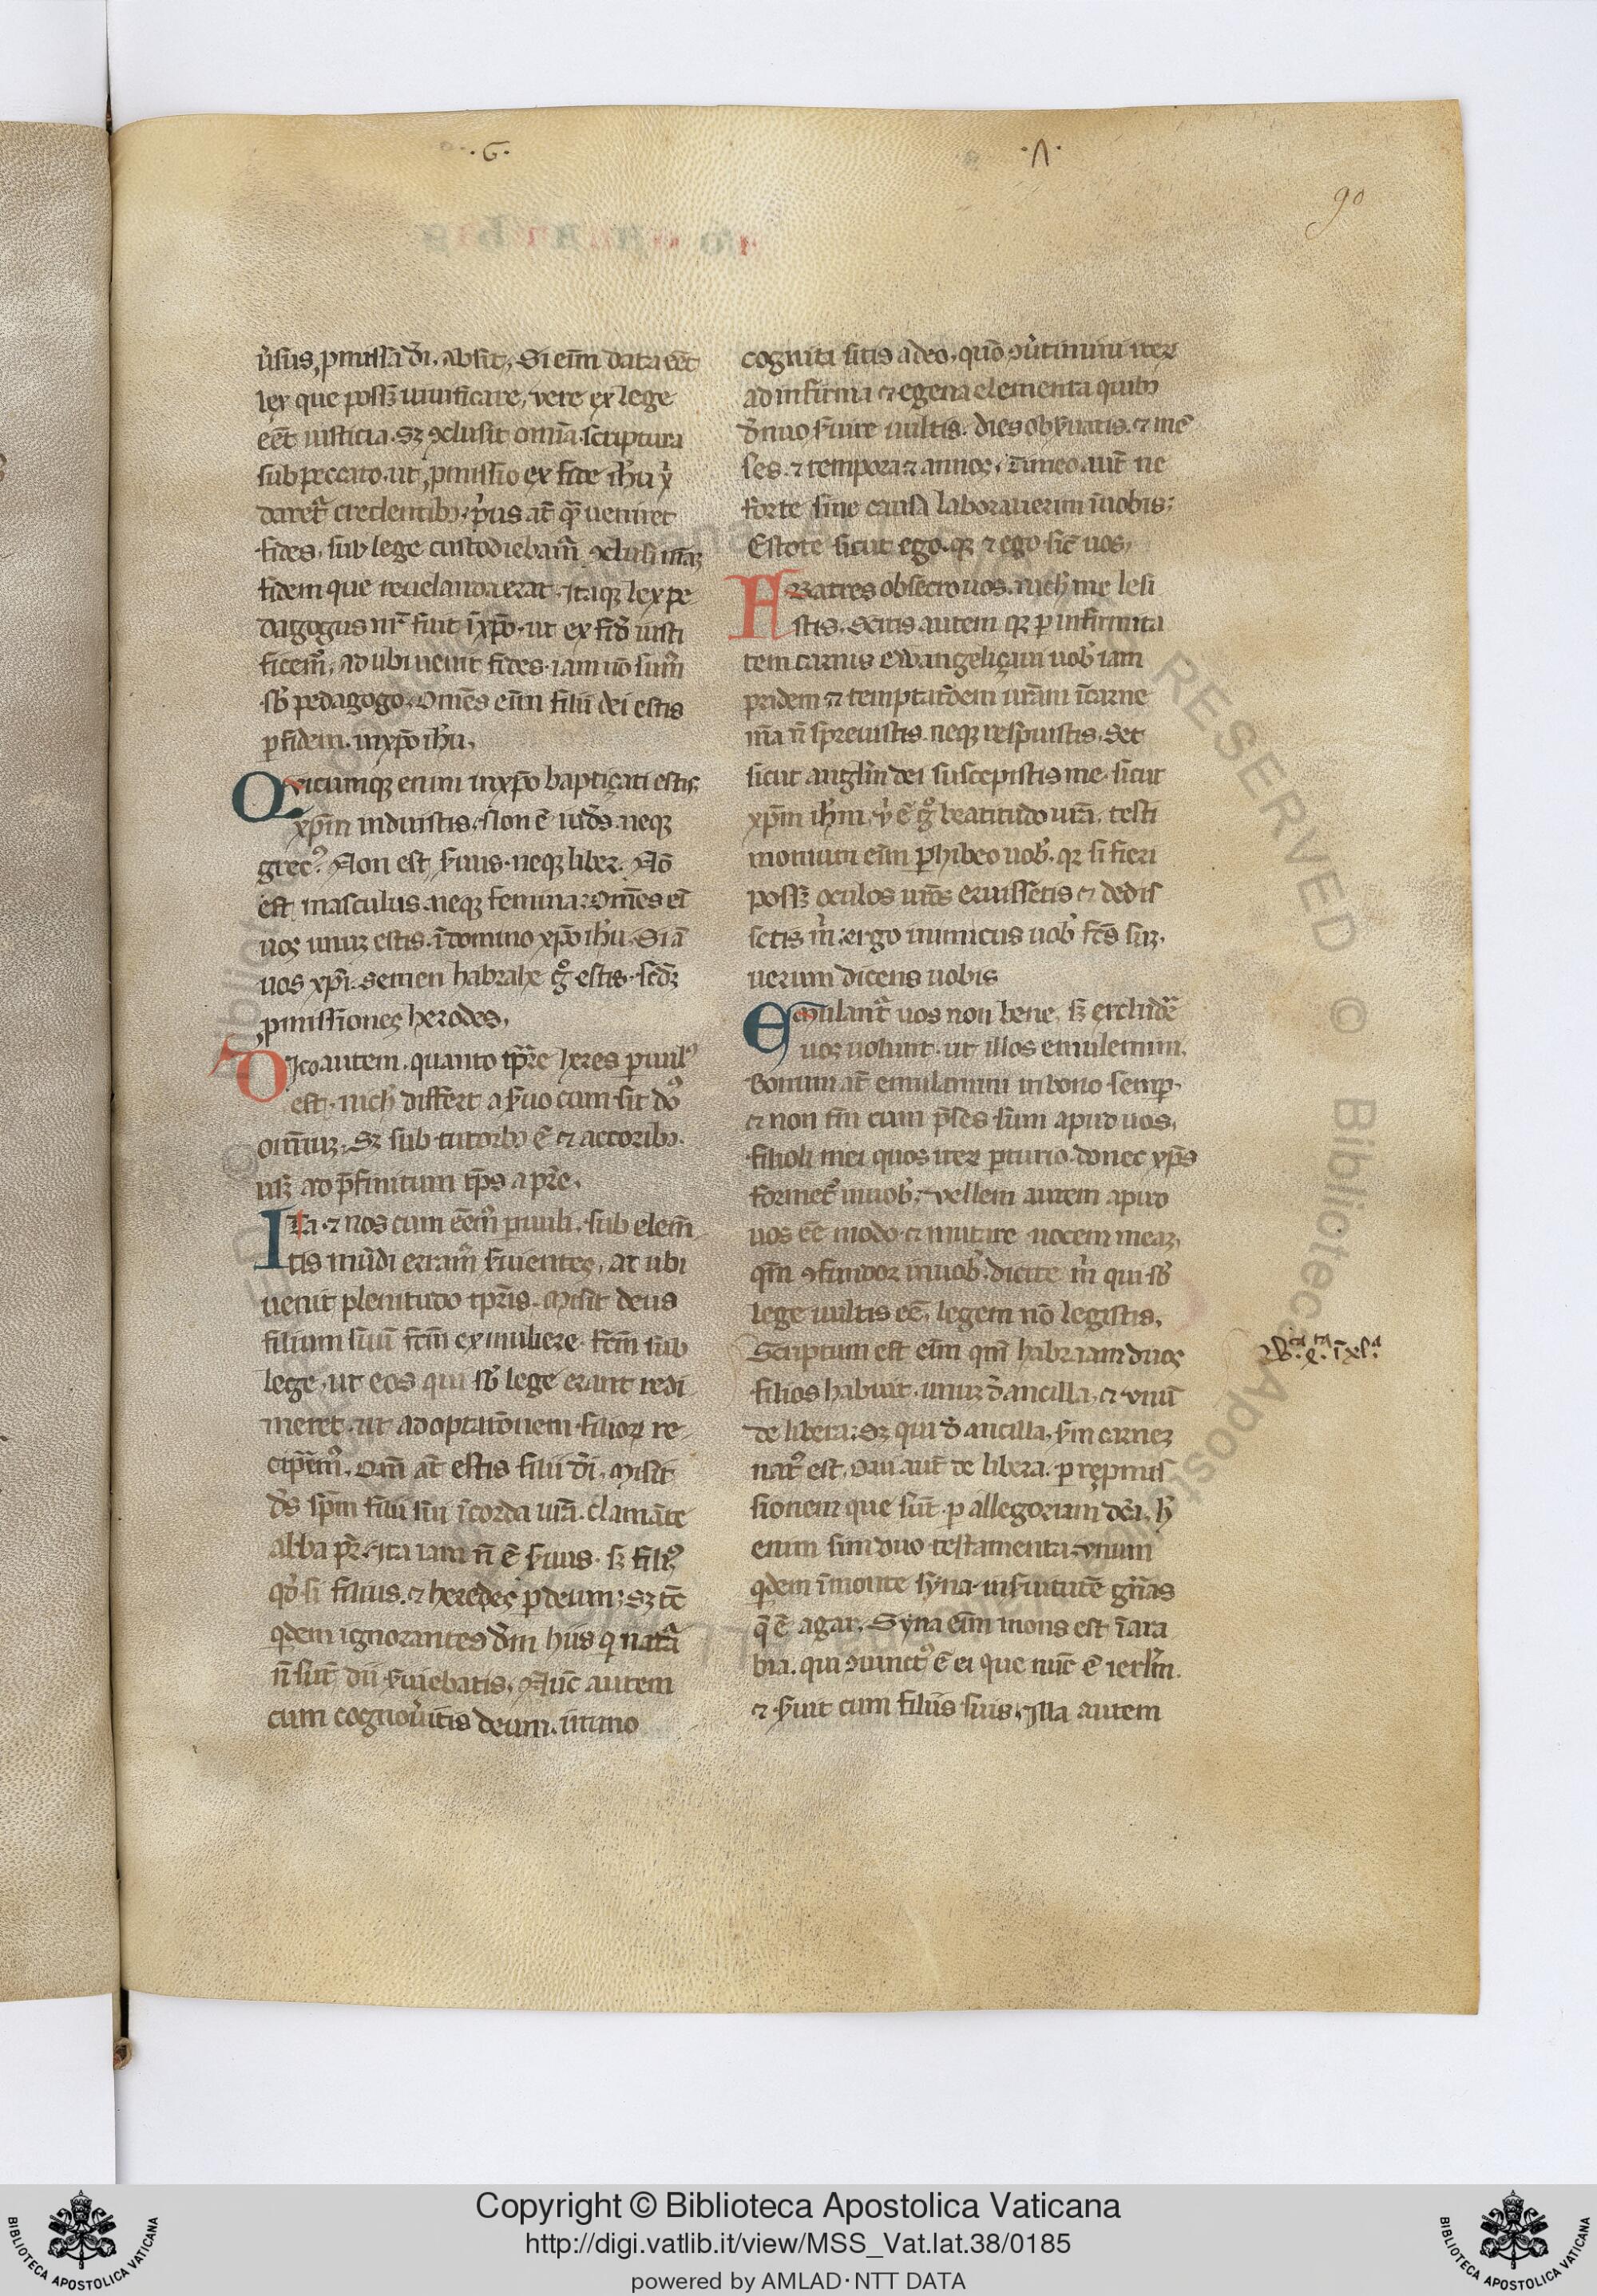 .G.
.Λ.
90
ẜsus ꝓmissa dī. absit. Si eīm data eēt
lex que posꝫ uiuificare, vere ex lege
eēt iusticia. Sꝫ ꝯclusit omīa scriptura
sub peccato. ut ꝓmissio ex fide ih̄u
daretᷣ credentibꝫ.
fides, sub lege custodiebam̄ ꝯclusi
fidem que reuelanda erat. Itaqꝫ lex pe
dagogus nr̄ fuit ī xp̄o. ut ex fid̄ iusti
ficem᷑, ad ubi uenit fides. iam nō sum᷑
sb̄ pedagogo. Om̄es eīm filii dei estis
ꝑ fidem. in xp̄o ih̄u.
Qvicumqꝫ enim in xp̄o baptiçati estis
xp̄m induistis. Non ē iud̄s. neqꝫ
grecꝰ. Non est ẜuus. neqꝫ liber. Nō
est masculus. neqꝫ femina. Om̄es eī
uos unuꝫ estis. ī domino xp̄o ih̄u. Si ā
uos xp̄i. semen habrahe gͦ estis. scd̄ꝫ
ꝓmissiones heredes.
Dico autem. quanto tp̄re heres ꝑuulꝰ
est. nich̄ differt a ẜuo cum sit dō
omīuꝫ. Sꝫ sub tutoribꝫ ē ⁊ actoribꝫ.
usqꝫ ad p̄finitum tp̄s a pr̄e.
Ita ⁊ nos cum eēm᷑ ꝑuuli. sub elem̄
tis mūdi eram᷑ ẜuientes, at ubi
uenit plenitudo tp̄ris. Misit deus
filium suū fc̄m ex muliere. fc̄m sub
lege, ut eos qui sb̄ lege erant redi
meret. ut adoptiōnem filioꝝ re-
cip̄em᷑. Qm̄ at̄ estis filii dī. Misit
ds̄ sp̄m filii sui ī corda ur̄a. clamāte
abba pr̄. Ita iam n̄ ē ẜuus. sꝫ filiꝰ
qd̄ si filius. ⁊ heredes ꝑ deum; Sꝫ tc̄
qͥdem ignorantes dm̄ hiis q̄ natā
n̄ sūt dii ẜuiebatis. Nūc autem
cum cognoūitis deum. immo
cogniti sitis a deo. quō ꝯūtimini iteꝝ
ad infirma ⁊ egena elementa quibꝫ
d̄nuo ẜuire uultis. Dies obẜuatis. ⁊ mē
ses. ⁊ tempora ⁊ annos. Timeo aut̄ ne
forte sine causa laborauerim ī uobis;
Estote sicut ego. qꝛ ⁊ ego sic̄ uos.
Fratres obsecro uos. nich̄ me lesi
stis. Scitis autem qꝛ ꝑ infirmita
tem carnis ewangeliçaui uob̄ iam
pridem ⁊ temptatiōem ur̄am ī carne
m̄a n̄ spreuistis. neqꝫ respuistis. Set
sicut angl̄m dei suscepistis me. sicut
xp̄m ih̄m. v̄ ē gͦ beatitudo ur̄a. testi
monium eīm ꝑhibeo uob̄. qꝛ si fieri
posꝫ oculos ur̄os eruissetis ⁊ dedis
setis m̄. ergo inimicus uob̄ fc̄s suꝫ.
uerum dicens uobis
Emulant᷑ uos non bene. sꝫ excludēr
uos uolunt. ut illos emulemini.
Bonum at̄ emulamini in bono semꝑ.
⁊ non tm̄ cum p̄ses sum apud uos.
filioli mei quos iteꝝ ꝑturio. donec xp̄s
formet᷑ in uob̄. vellem autem apud
uos eē modo. ⁊ mutare uocem meaꝫ.
qm̄ ꝯfundor in uob̄. Dicite m̄ qui sb̄
lege uultis eē. legem nō legistis.
Scriptum est eīm qm̄ habraam duos
filios habuit. unuꝫ d̄ ancilla. ⁊ vnū
de libera; Sꝫ qui d̄ ancilla. ẜm carneꝫ
natꝰ est. Qui aut̄ de libera. ꝑ repmis
sionem que sūt ꝑ allegoriam dc̄a. h̄
enim sunt duo testamenta. vnum
qͥdem ī monte syna. in ẜuitutē gn̄as
q̄ ē agar. Syna eīm mons est ī ara
bia. qui ꝯiunctꝰ ē ei que nūc ē ierl̄m.
⁊ ẜuit cum filiis suis. Illa autem
Copyright © Biblioteca Apostolica Vaticana
http://digi.vatlib.it/view/MSS_Vat.lat.38/0185
powered by AMLAD·NTT DATA
BIBLIOTECA APOSTOLICA VATICANA
BIBLIOTECA APOSTOLICA VATICANA